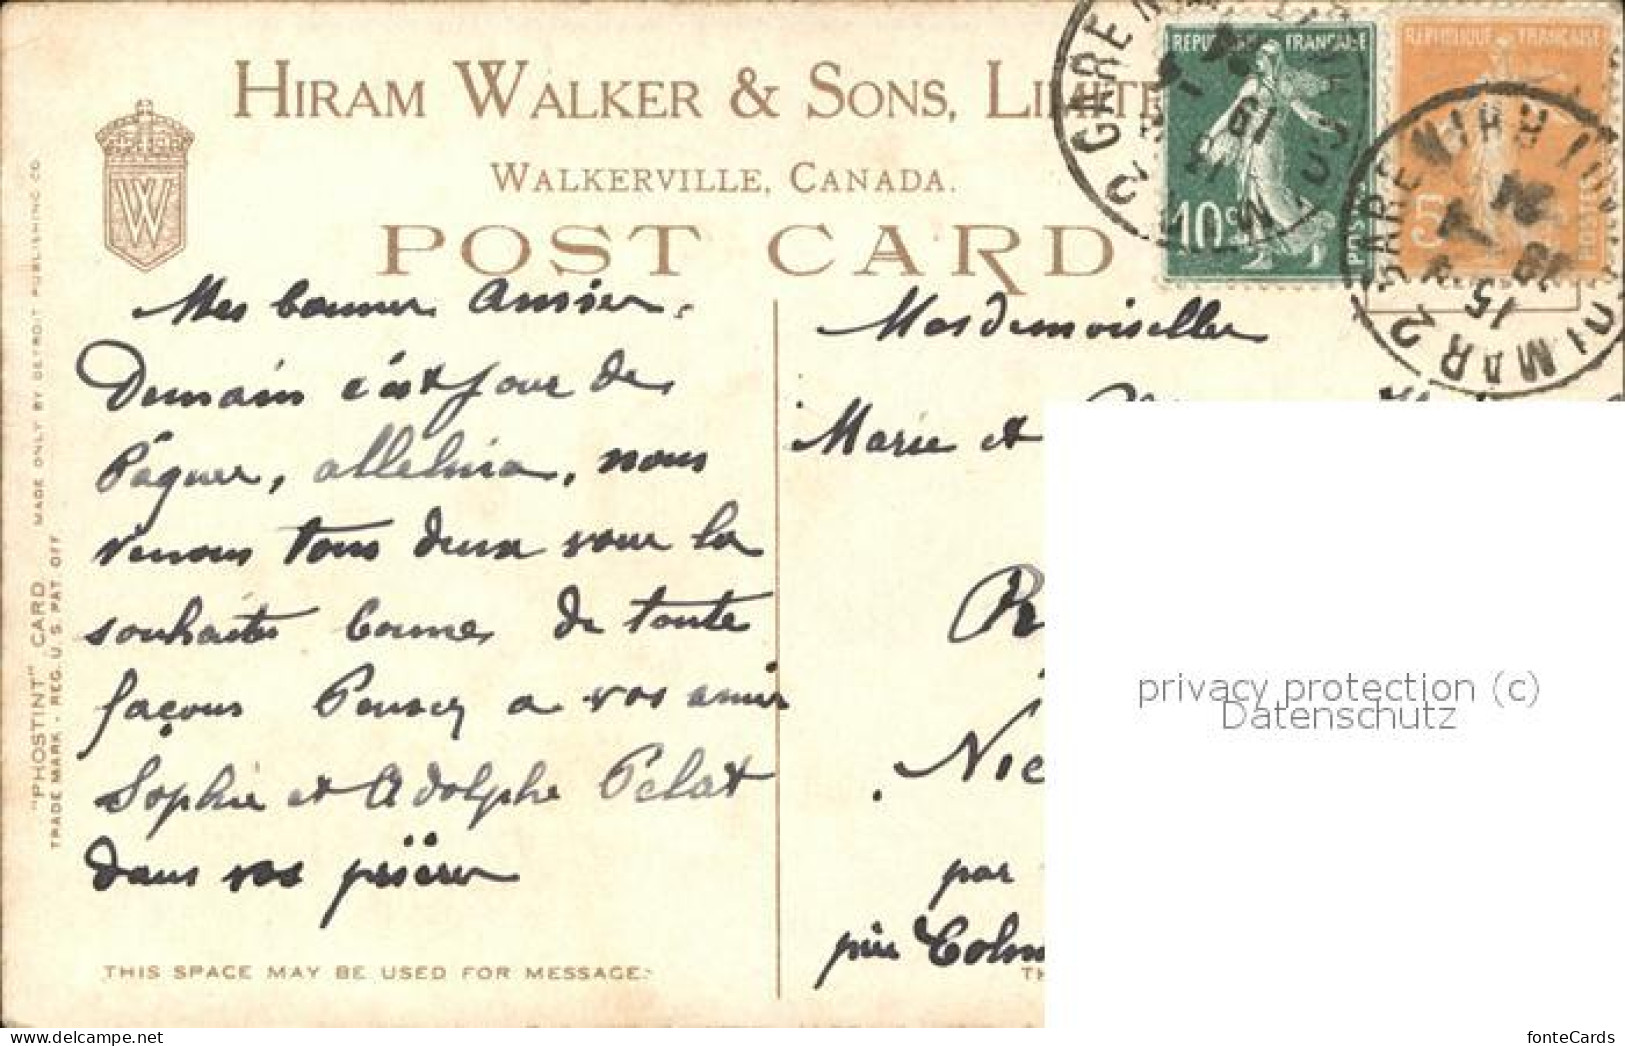 HIRAM WALKER & SONS, LIMITE
WALKERVILLE, CANADA.
POST CARD
W
"PHOSTINT" CARD MADE ONLY BY DETROIT PUBLISHING CO.
TRADE MARK - REG. U.S. PAT OFF
REPUBLIQUE FRANÇAISE
10c
POSTES
REPUBLIQUE FRANÇAISE
5
POSTES
2 GARE
MAR 2
15
Mes bonnes Amies.
Demain c'est jour de
Pâques, alleluia, nous
venons tous deux vous la
souhaiter bonne, de toute
façons Pensez a vos amis
Sophie et Adolphe Pelat
dans vos prières
Mesdemoiselles
Marie et
R
Nic
par
près Colm
THIS SPACE MAY BE USED FOR MESSAGE.
TH
privacy protection (c)
Datenschutz
www.delcampe.net
fonteCards